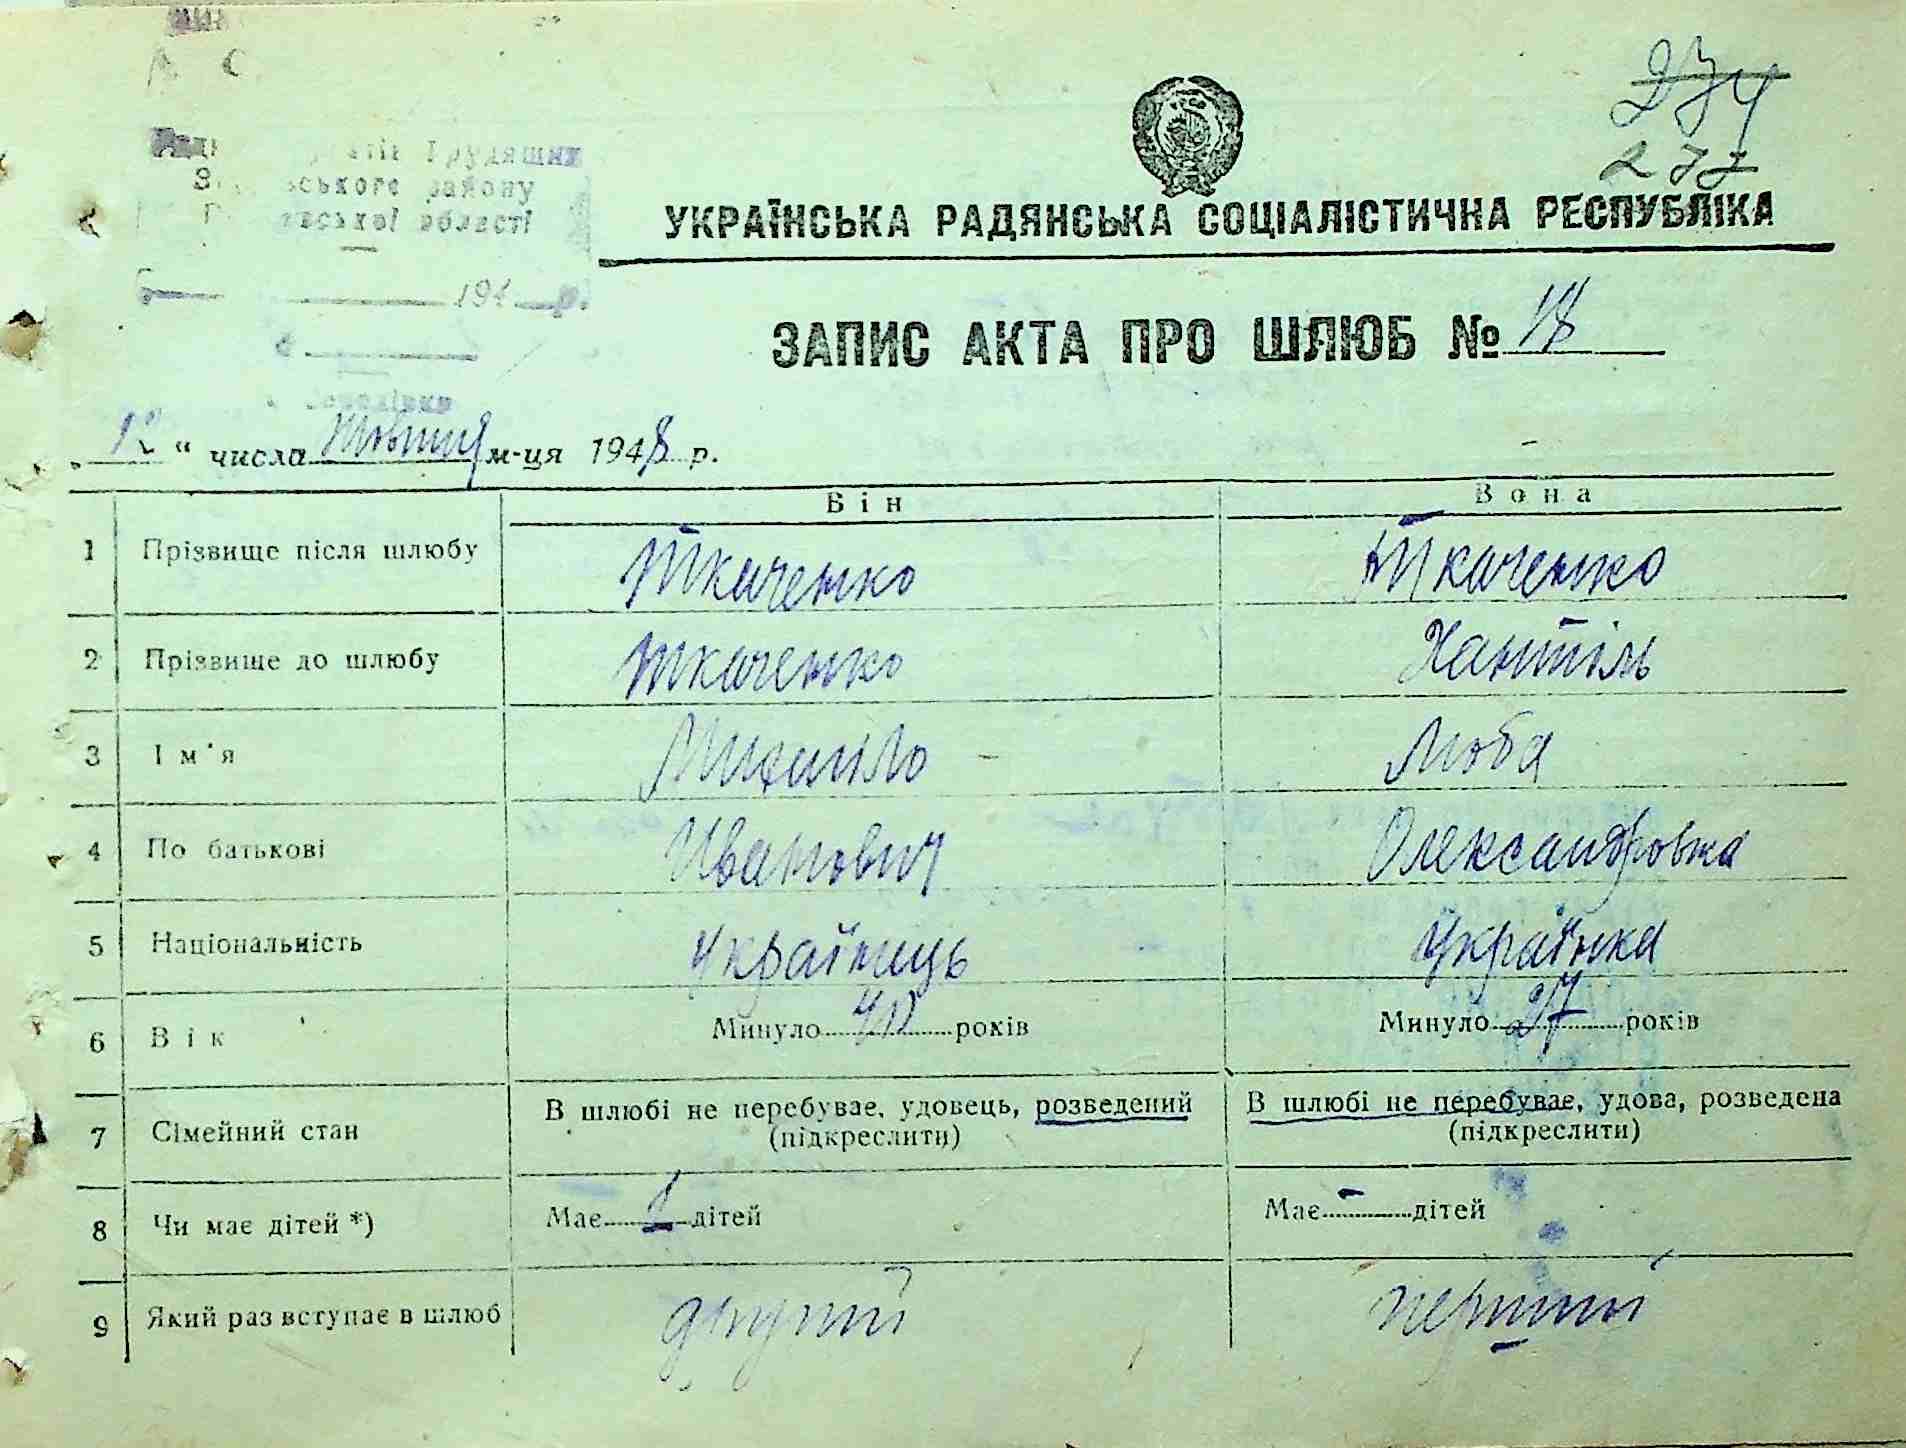 274
277
Трудящих
району
області
УКРАЇНСЬКА РАДЯНСЬКА СОЦІАЛІСТИЧНА РЕСПУБЛІКА
194 р.
ЗАПИС АКТА ПРО ШЛЮБ № 18
„12“ числа Жовтня м-ця 1948 р.
Він Вона
1 Прізвище після шлюбу Ткаченко Ткаченко
2 Прізвище до шлюбу Ткаченко Хантіль
3 Ім'я Михайло Люба
4 По батькові Иванович Олександровна
5 Національність Українець Українка
6 Вік Минуло 40 років Минуло 27 років
7 Сімейний стан В шлюбі не перебуває, удовець, розведений (підкреслити) В шлюбі не перебуває, удова, розведена (підкреслити)
8 Чи має дітей *) Має 1 дітей Має — дітей
9 Який раз вступає в шлюб другий перший